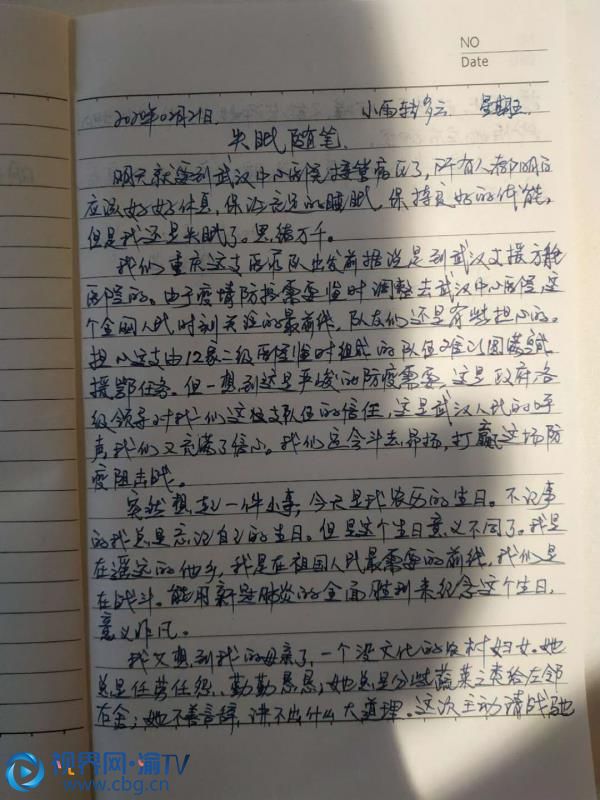 NO
Date
2020年02月21日. 小雨转多云 星期五.
失眠随笔.
明天就要到武汉中心医院接管病区了, 所有人都明白
应该好好休息, 保证充足的睡眠, 保持良好的体能,
但是我还是失眠了。思绪万千。
我们重庆这支医疗队出发前据说是到武汉支援方舱
医院的。由于疫情防控需要临时调整去武汉中心医院, 这
个全国人民时刻关注的最前线, 队友们还是有些担心的。
担心这支由12家二级医院临时组成的队伍难以圆满完成
援鄂任务。但一想到这是严峻的防疫需要, 这是政府各
级领导对我们这校支队伍的信任, 这是武汉人民的呼
声我们又充满了信心。我们应令斗志昂扬, 打赢这场防
疫阻击战。
突然想起一件小事, 今天是我农历的生日。不记事
的我总是忘记自己的生日。但是这个生日意义不同了。我是
在遥远的他乡, 我是在祖国人民最需要的前线, 我们是
在战斗。能用新冠肺炎的全面胜利来纪念这个生日,
意义非凡。
我又想到我的母亲了, 一个没文化的农村妇女。她
总是任劳任怨、勤勤恳恳; 她总是分些蔬菜之类给左邻
右舍; 她不善言辞, 讲不出什么大道理。这次主动请战驰
视界网·渝TV
www.cbg.cn